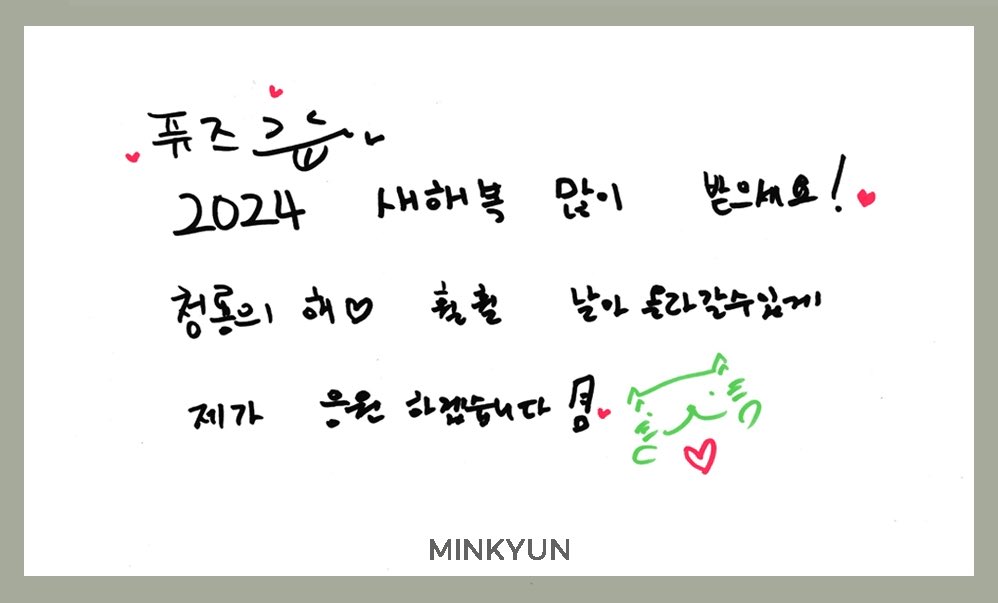 퓨즈
2024 새해복 많이 받으세요!
청룡의 해♡ 훨훨 날아 올라갈수있게
제가 응원 하겠습니다
MINKYUN